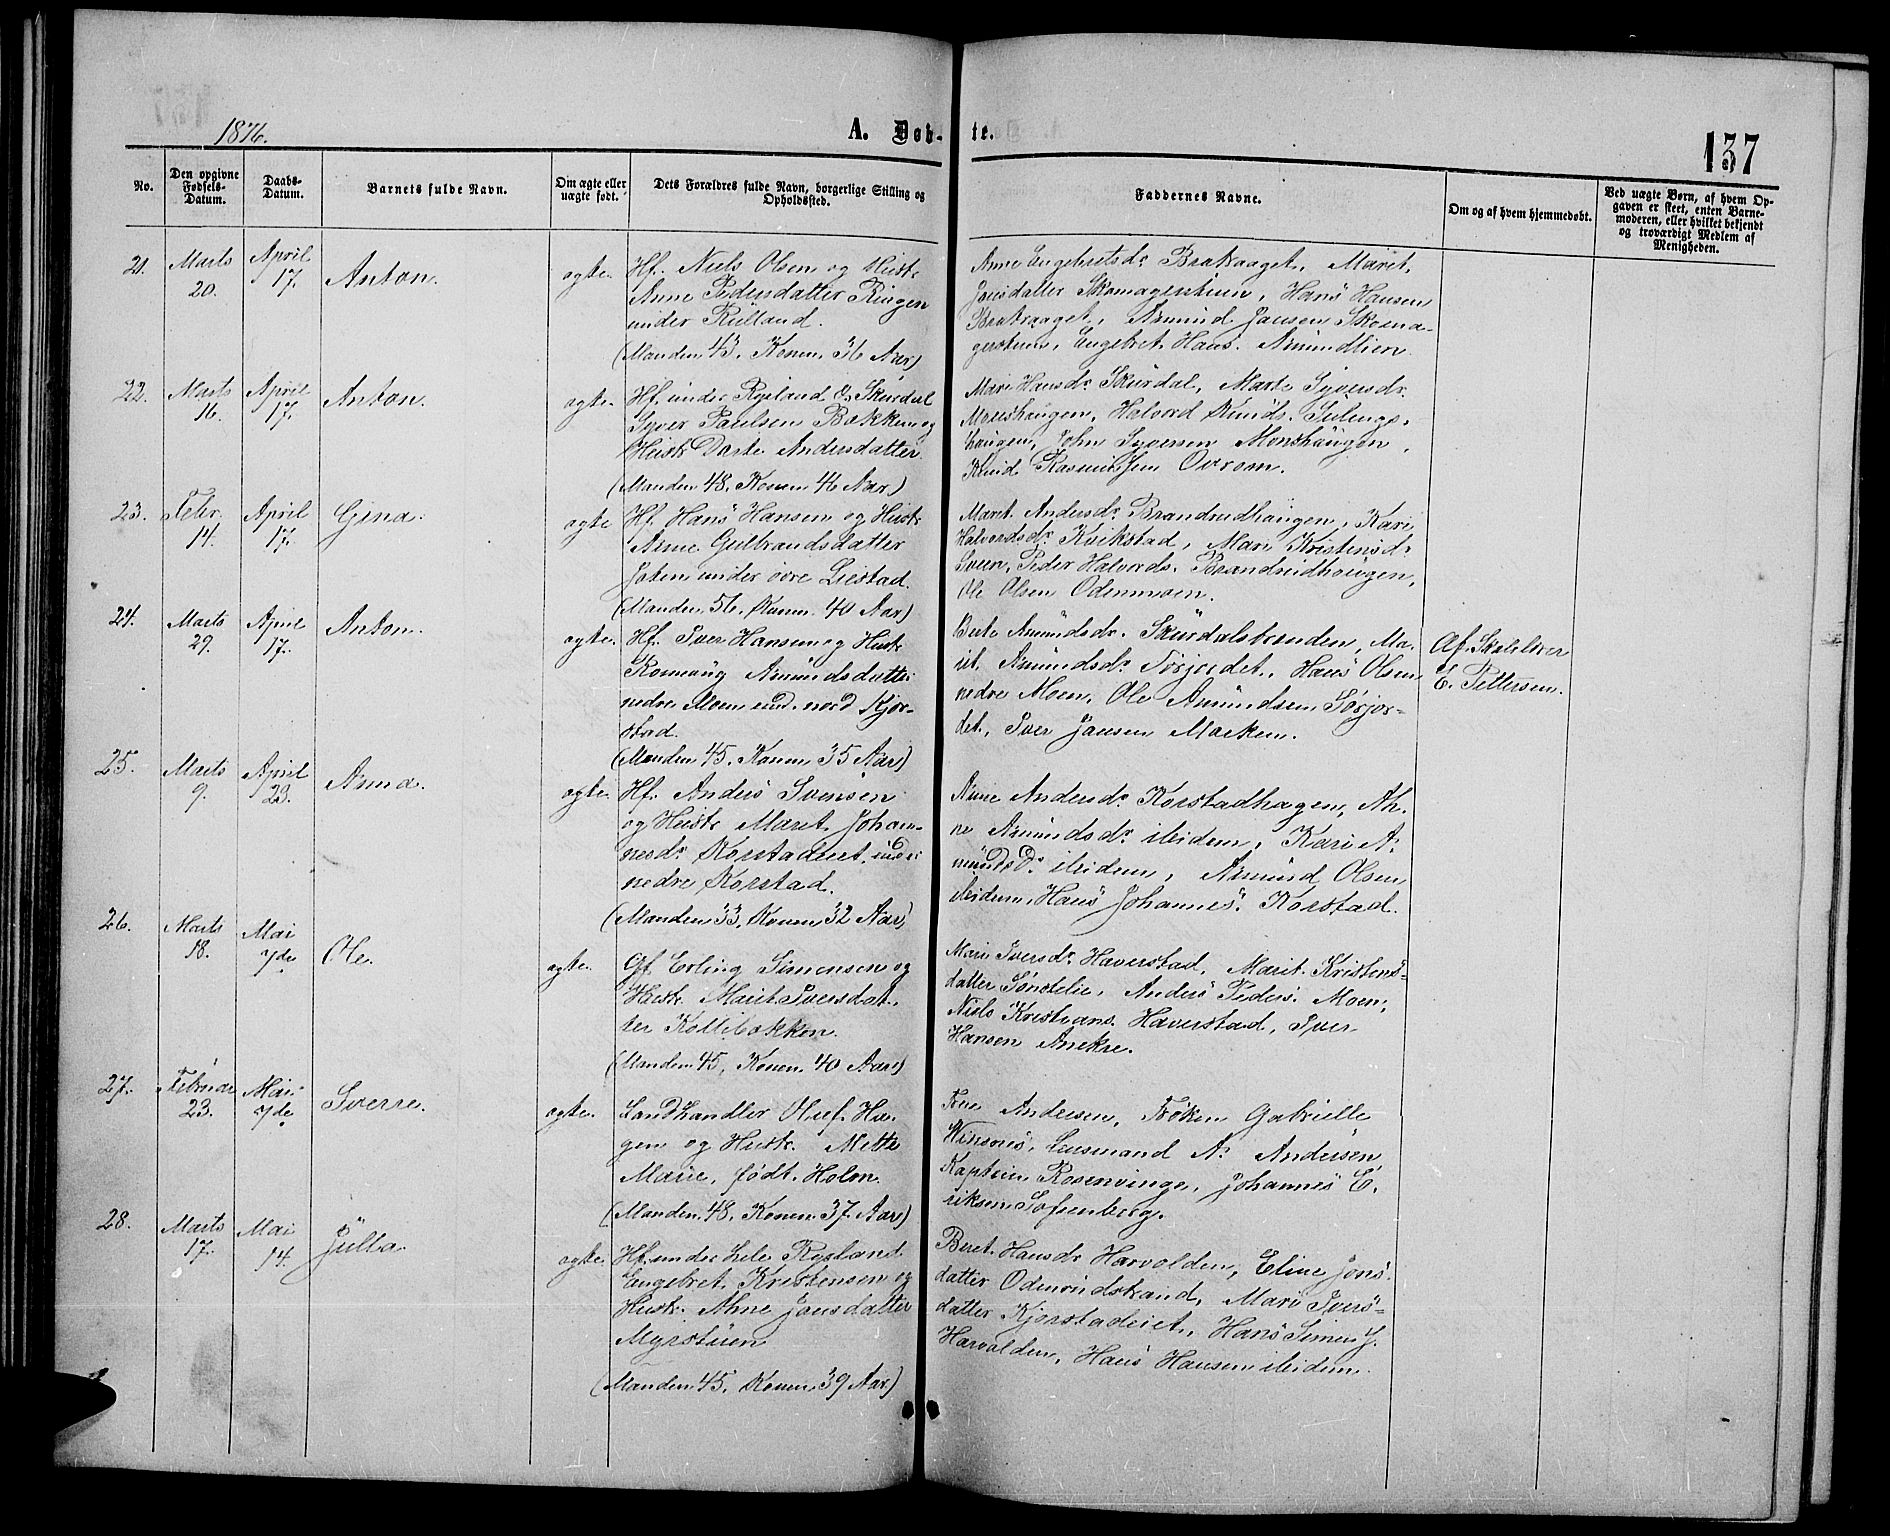 1876.
A. Døb-
te.
137
No.
Den opgivne
Fødsels-
Datum.
Daabs-
Datum.
Barnets fulde Navn.
Om ægte eller
uægte født.
Dets Forældres fulde Navn, borgerlige Stilling og
Opholdssted.
Faddernes Navne.
Om og af hvem hjemmedøbt.
Ved uægte Børn, af hvem Op-
gaven er skeet, enten Barne-
moderen, eller hvilket bekjendt
og troværdigt Medlem af
Menigheden.
21.
Marts
20.
April
17.
Anton.
ægte.
Hf. Niels Olsen og Hustr.
Anne Pedersdatter Ringen
under Rulland.
(Manden 43, Konen 36 Aar)
Anne Engebretsdr. Brakaaget, Marit
Jonsdatter Skomagerstuen, Hans Hansen
Brakaaget, Amund Jansen Skoma-
gerstuen, Engebret Hans. Amundlien.
22.
Marts
16.
April
17.
Anton.
ægte.
Hf. under Rysland & Skurdal
Syver Paulsen Bakken og
Hustr. Dorte Andersdatter.
(Manden 48, Konen 46 Aar)
Mari Hansdr. Skurdal, Marte Syversdr.
Monshaugen, Halvord Knuds.
haugen, John Syversen Monshaugen,
Knud Rasmussen Ovrom.
23.
Febr.
14.
April
17.
Gina.
ægte
Hf. Hans Hansen og Hustr.
Anne Gulbrandsdatter
under øvre Liestad.
(Manden 56, Konen 40 Aar)
Maret Andersdr. Brandrudhaugen, Kari
Halvordsdr. Kvikstad, Mari Kristensd.
Sveen, Peder Halvords. Brandrudhaugen,
Ole Olsen Odenmoen.
24.
Marts
29.
April
17.
Anton.
ægte.
Hf. Iver Hansen og Hustr.
Romaug Amundsdatter
nedre Moen und. nord Kjør-
stad.
(Manden 45, Konen 35 Aar)
Berte Amundsdr. Skurdalsbrenden, Ma-
rit Amundsdr. Sørjordet, Hans Olsen
nedre Moen, Ole Amundsen Sørjor-
det, Iver Jansen Moeken.
Af Skolelærer
E. Pettersen.
25.
Marts
9.
April
23.
Anna.
ægte.
Hf. Anders Svensen
og Hustr. Maret Johan-
nesdr. Korstadeiet under
nedre Korstad.
(Manden 33, Konen 32 Aar)
Anne Andersdr. Korstadhagen, An-
ne Amundsdr. ibidem, Kari A-
mundsdr. ibidem, Amund Olsen
ibidem, Hans Johannes. Korstad.
26.
Marts
18.
Mai
7de
Ole.
ægte.
Gf. Erling Simensen og
Hustr. Marit Iversdat-
ter Kollebakken.
(Manden 45, Konen 40 Aar)
Mari Iversdr. Haverstad, Marit Kristens-
datter Sønstelie, Anders Peders. Moen,
Niels Kristians. Haverstad, Iver
Hansen Anekre.
27.
Februar
23.
Mai
7de
Sverre.
ægte.
Landhandler Oluf Ha-
gen og Hustr. Mette
Marie, født Holm.
(Manden 48, Konen 37 Aar)
Frue Andersen, Frøken Gabrielle
Winsnes, Lensmand A. Andersen
Kaptein Rosenvinge, Johannes E-
riksen Sofienberg.
28.
Marts
17.
Mai
14.
Julla.
ægte.
Hf. under Lele Rysland
Engebret Kristensen og
Hustr. Anne Jonsdatter
Myrstuen
(Manden 45, Konen 39 Aar)
Beret Hansdr. Harvolden, Eline Jons-
datter Odenrudstrand, Mari Ivers-
datter Kjørstadeiet, Hans Simen J.
Harvolden, Hans Hansen ibidem.